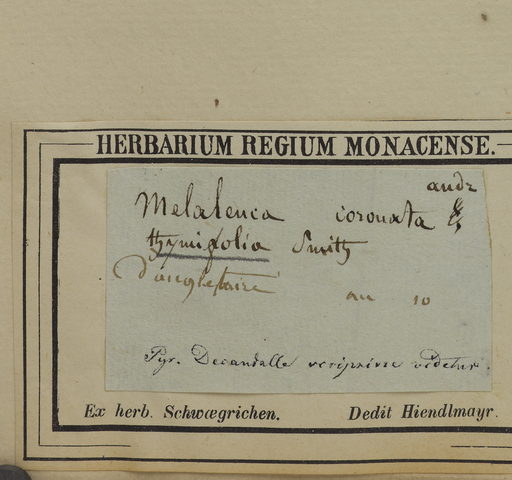 HERBARIUM REGIUM MONACENSE.
andr
Melaleuca coronata
thymifolia Smith
d'angletaire an 10
Pyr. Decandolle scripsisse videtur.
Ex herb. Schwægrichen. Dedit Hiendlmayr.